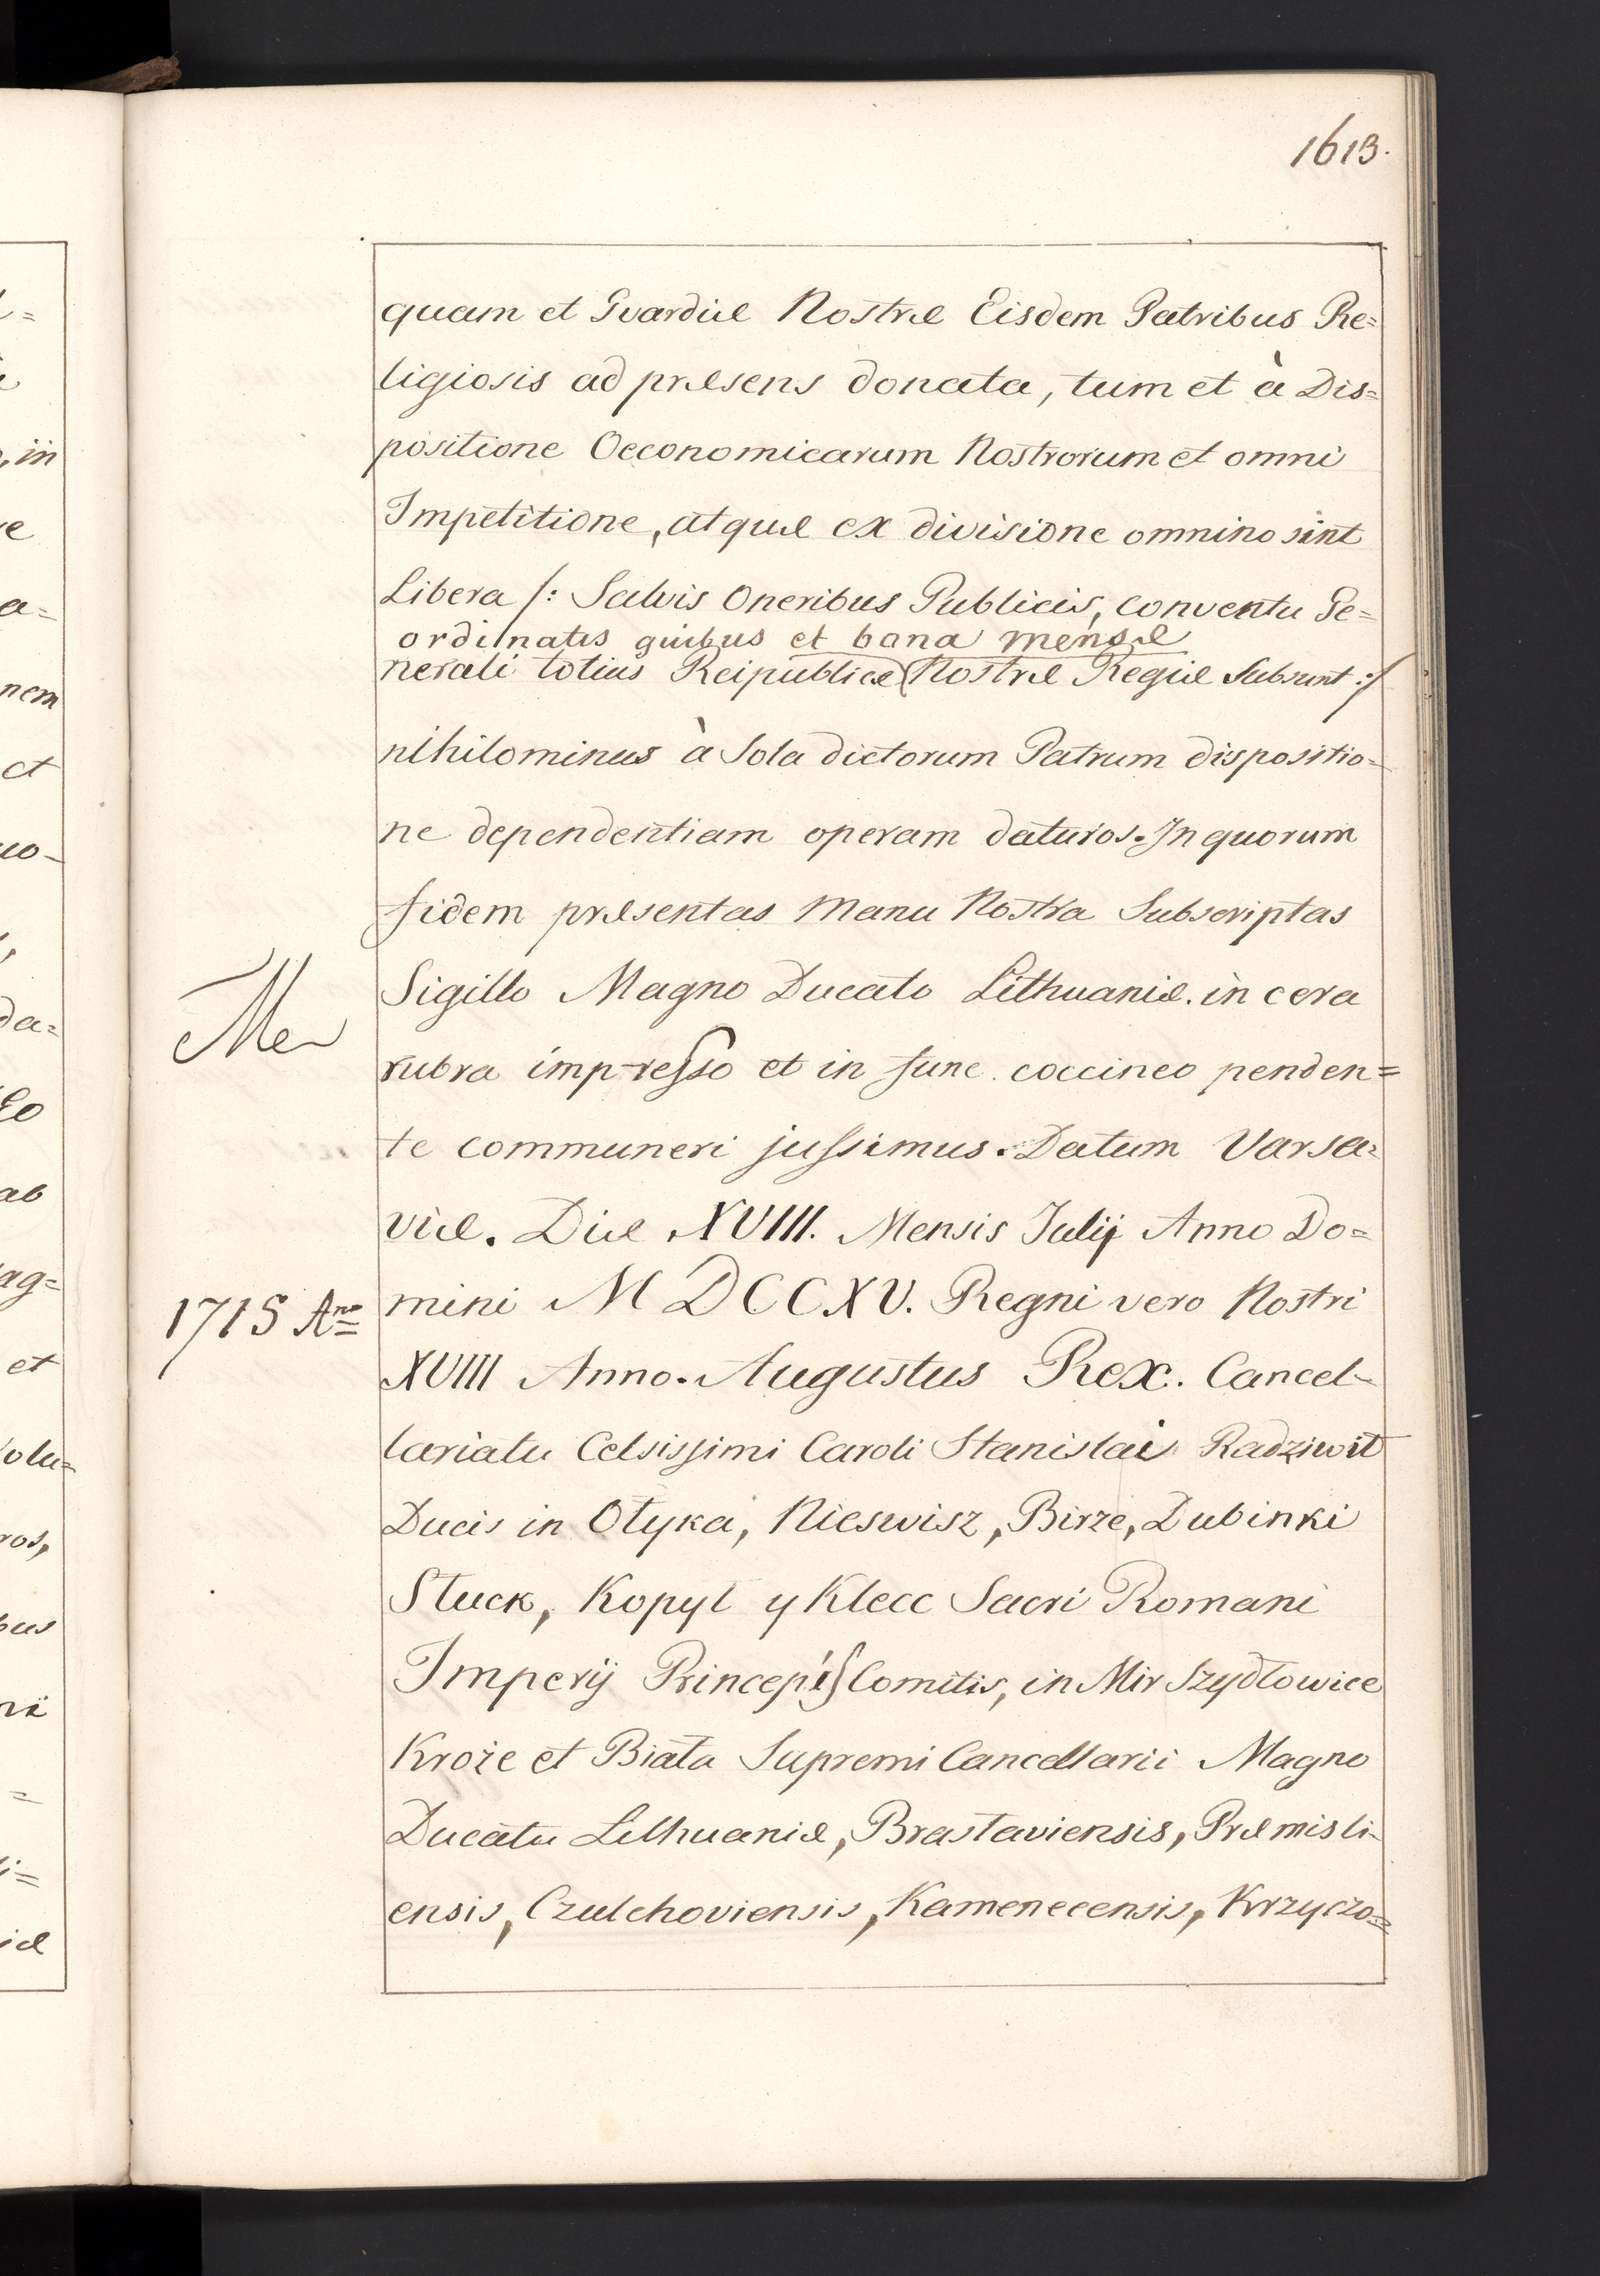 1613.
quam et Gvardiæ Nostræ Eisdem Patribus Re=
ligiosis ad præsens donata, tum et à Dis=
positione Oeconomicarum Nostrorum et omni
Impetitione, atquæ ex divisione omnino sint
Libera /: Salvis Oneribus Publicis, conventu Ge=
ordinatis quibus et bona mensæ
nerali totius Reipublicæ Nostræ Regiæ Subsunt :/
nihilominus à Sola dictorum Patrum dispositio=
ne dependentiam operam daturos. In quorum
fidem præsentas Manu Nostra Subscriptas
Sigillo Magno Ducato Lithuaniæ. in cera
rubra impresso et in fune coccineo penden=
te communeri jussimus. Datum Varsa=
viæ. Diæ XVIII. Mensis Julij Anno Do=
1715 Ano
mini MDCCXV. Regni vero Nostri
XVIII Anno. Augustus Rex. Cancel=
lariatu Celsissimi Caroli Stanislai Radziwił
Ducis in Ołyka, Nieswisz, Birże, Dubinki
Słuck, Kopyl y Klecc Sacri Romani
Imperij Princepis Comitis, in Mir Szydłowice
Kroże et Biała Supremi Cancellarii Magno
Ducatu Lithuaniæ, Brasłaviensis, Præmisli=
ensis, Czulchoviensis, Kamenecensis, Krzyczo=